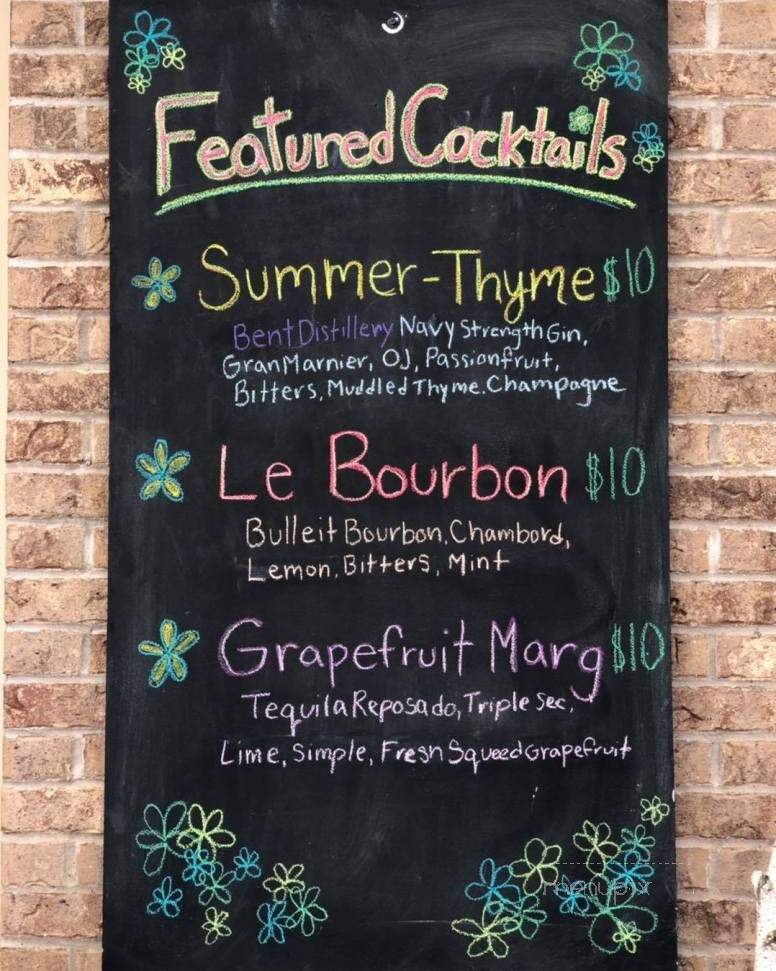 Featured Cocktails
Summer-Thyme $10
Bent Distillery Navy Strength Gin,
Gran Marnier, OJ, Passionfruit,
Bitters, Muddled Thyme. Champagne
Le Bourbon $10
Bulleit Bourbon, Chambord,
Lemon, Bitters, Mint
Grapefruit Marg $10
Tequila Reposado, Triple Sec,
Lime, Simple, Fresh Squeed Grapefruit
menupix